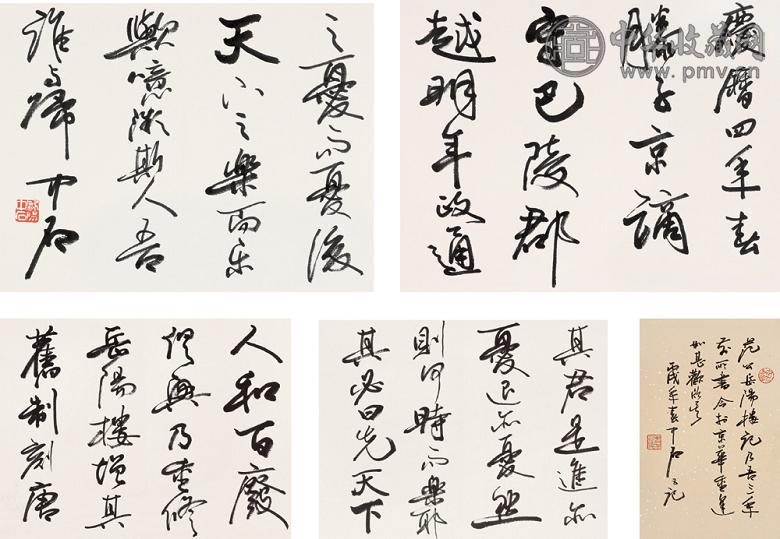 中华收藏网
www.pmv.cn
慶曆四年春
滕子京謫
守巴陵郡
越明年政通
人和百廢
俱興乃重修
岳陽樓增其
舊制刻唐
其君是進亦
憂退亦憂然
則何時而樂耶
其必曰先天下
之憂而憂後
天下之樂而乐
歟噫微斯人吾
誰與歸 中石
范公岳陽樓記乃吾三年
前所書今於京華重逢
年春中石又記